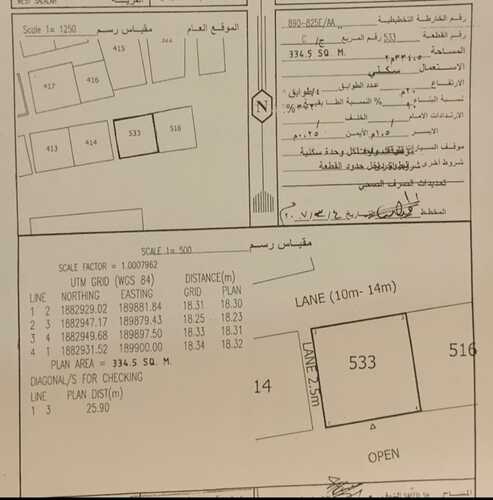 WEST SALALAH
Scale 1= 1250
مقياس رسم
الموقع العام
415
417
416
413
414
533
516
رقم الخارطة التخطيطية 890-825E/AA
رقم القطعة 533 رقم المربع ج/
المساحة ٣٣٤,٥م٢ 334.5 SQ. M.
الاستعمال سكني
الارتفاع عدد الطوابق /٤طوابق
نسبة البناء
الارتدادات الأمام / الخلف /
الايسر ١,٥م الأيمن ٠,٢٥م
موقف السيارات لكل وحدة سكنية
شروط أخرى حدود القطعة
تمديدات الصرف الصحي
المخطط
N
SCALE 1= 500
مقياس رسم
SCALE FACTOR = 1.0007962
UTM GRID (WGS 84) DISTANCE(m)
LINE NORTHING EASTING GRID PLAN
1 2 1882929.02 189881.84 18.31 18.30
2 3 1882947.17 189879.43 18.25 18.23
3 4 1882949.68 189897.50 18.33 18.31
4 1 1882931.52 189900.00 18.34 18.32
PLAN AREA = 334.5 SQ. M.
DIAGONAL/S FOR CHECKING
LINE PLAN DIST(m)
1 3 25.90
LANE (10m- 14m)
LANE 2.5m
533
516
14
OPEN